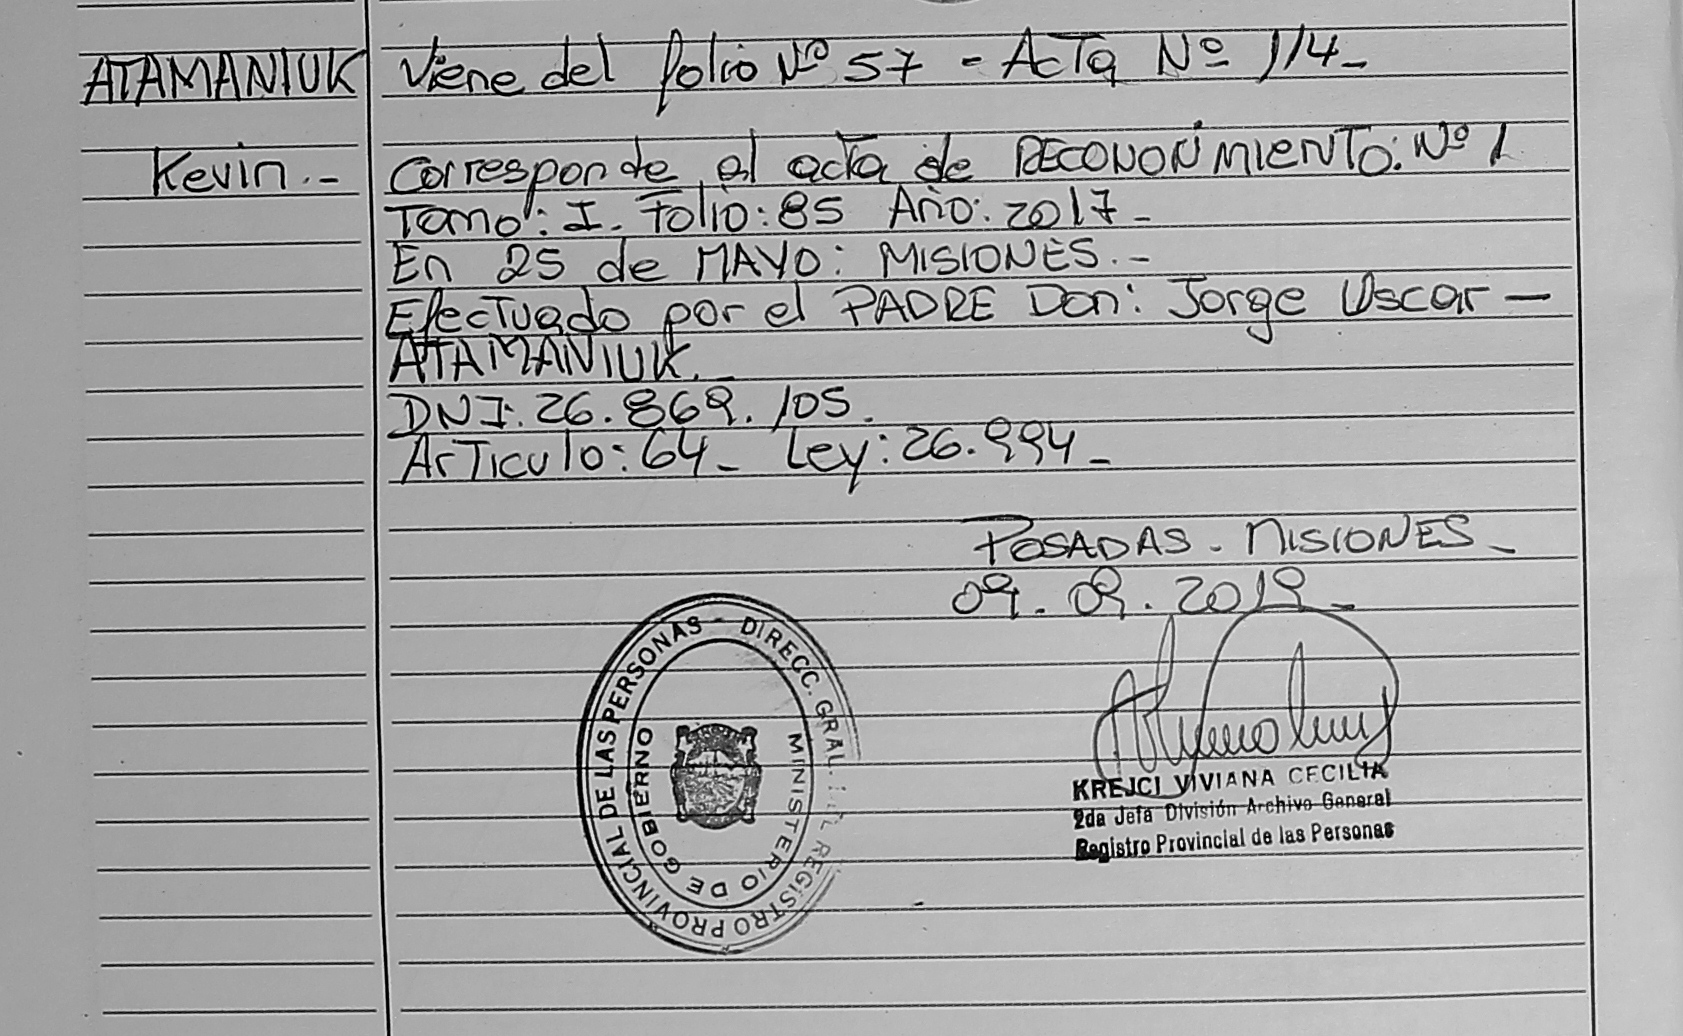 ATAMANIUK Viene del folio Nº 57 - Acta Nº 114-
Kevin.- Corresponde al acta de RECONOCIMIENTO: Nº 1
Tomo: I. Folio: 85 Año: 2017-
En 25 de MAYO: MISIONES.-
Efectuado por el PADRE Don: Jorge Oscar —
ATAMANIUK.-
DNI: 26.869.105.
Articulo: 64- Ley: 26.994-
POSADAS - MISIONES-
09.09.2019-
REGISTRO PROVINCIAL DE LAS PERSONAS - DIRECC. GRAL.
MINISTERIO DE GOBIERNO
KREJCI VIVIANA CECILIA
2da Jefa División Archivo General
Registro Provincial de las Personas